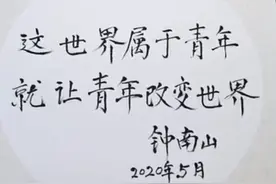 这世界属于青年
就让青年改变世界
钟南山
2020年5月